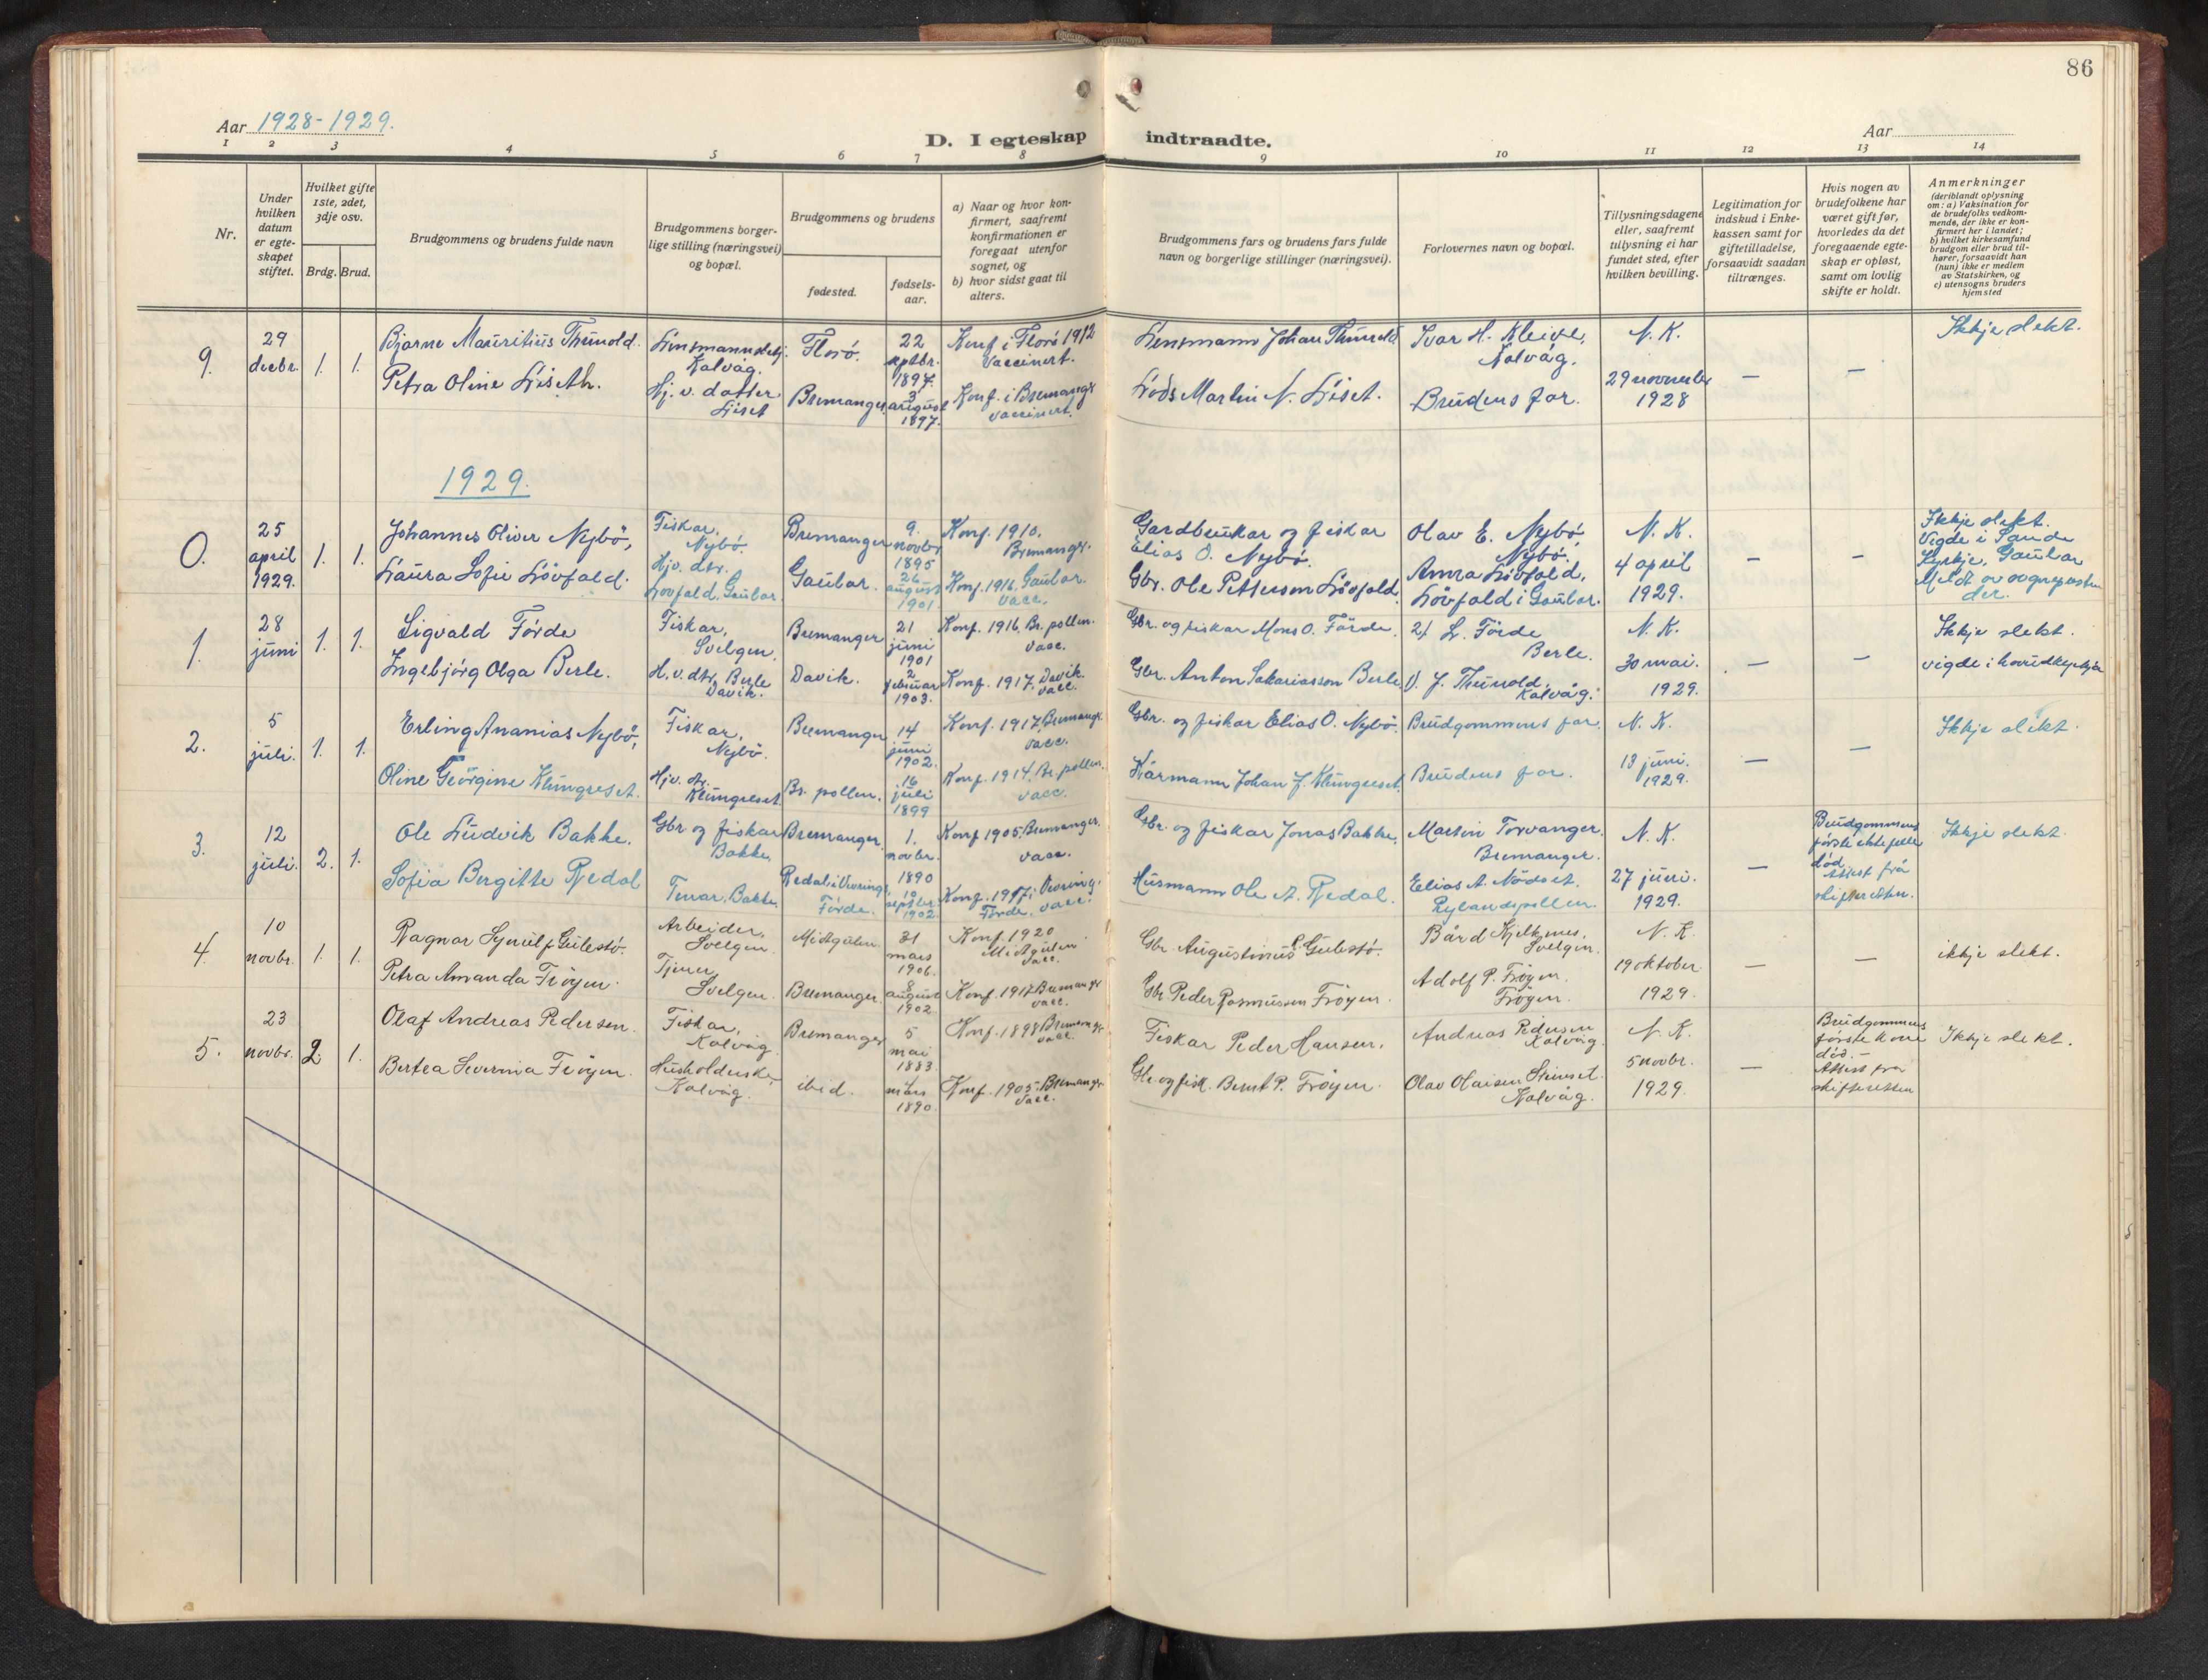 86
Aar 1928-1929.
D. I egteskap indtraadte.
Aar
1 2 3 4 5 6 7 8 9 10 11 12 13 14
Nr.
Under hvilken datum er egteskapet stiftet.
Hvilket gifte 1ste, 2det, 3dje osv.
Brdg. Brud.
Brudgommens og brudens fulde navn
Brudgommens borgerlige stilling (næringsvei) og bopæl.
Brudgommens og brudens
fødested.
fødselsaar.
a) Naar og hvor konfirmert, saafremt konfirmationen er foregaat utenfor sognet, og
b) hvor sidst gaat til alters.
Brudgommens fars og brudens fars fulde navn og borgerlige stillinger (næringsvei).
Forlovernes navn og bopæl.
Tillysningsdagene eller, saafremt tillysning ei har fundet sted, efter hvilken bevilling.
Legitimation for indskud i Enkekassen samt for giftetilladelse, forsaavidt saadan tiltrænges.
Hvis nogen av brudefolkene har været gift før, hvorledes da det foregaaende egteskap er opløst, samt om lovlig skifte er holdt.
Anmerkninger
(deriblandt oplysning om: a) Vaksination for de brudefolks vedkommende, der ikke er konfirmert her i landet; b) hvilket kirkesamfund brudgom eller brud tilhører, forsaavidt han (hun) ikke er medlem av Statskirken, og c) utensogns bruders hjemsted
9. 29 decbr. 1. 1.
Bjarne Mauritius Thunold.
Kalvåg.
Florö.
22 septbr. 1897.
Konf. i Florö 1912
Vaccinert.
Lensmann Johan Thunold
Ivar H. Kleive,
Kalvåg.
N. K.
29 november
1928
—
—
Ikkje slekt.
Petra Oline Liseth.
Hj. v. datter
Liset
Bremanger
3 august 1897.
Konf. i Bremanger
Vaccinert.
Lods Martin N. Liset.
Brudens far.
1929.
0. 25 april 1929. 1. 1.
Johannes Oliver Nybö,
Fiskar,
Nybö.
Bremanger
9. novbr 1895
Konf. 1910.
Bremanger.
Gardbrukar og fiskar
Elias O. Nybö.
Olav E. Nybö
Nybö.
N. K.
4 april
1929.
—
—
Ikkje slekt.
Vigde i Sande
Kyrkje, Gaular
Laura Sofie Lövfald.
Hjv. dtr.
Lovfald, Gaular.
Gaular.
26 august 1901.
Konf. 1916, Gaular.
Vacc.
Gbr. Ole Petterson Lövfald
Anna Lövfald,
Lövfald i Gaular.
1. 28 juni 1. 1.
Sigvald Förde
Fiskar,
Svelgen.
Bremanger
21 juni 1901
Konf. 1916, Br. pollen.
Vacc.
Gbr. og fiskar Mons O. Förde.
L. Förde
Berle.
N. K.
30 mai.
1929.
—
—
Ikkje slekt.
vigde i hovudkyrkja
Ingebjörg Olga Berle.
H. v. dtr, Berle
Davik.
Davik.
2 februar 1903.
Konf. 1917. Davik
Vacc.
Gbr. Anton Sakariasson Berle
J. Thunold,
Kalvåg.
2. 5 juli. 1. 1.
Erling Ananias Nybö,
Fiskar,
Nybö.
Bremanger
14 juni 1902.
Konf. 1917, Bremangr.
Vacc.
Gbr. og fiskar Elias O. Nybö.
Brudgommens far.
N. K.
13 juni.
1929.
—
—
Ikkje slekt.
Oline Georgine Klungreset.
Hjv. dtr.
Klungreset
Br. pollen.
16 juli 1899
Konf. 1914, Br. pollen.
Vacc.
Kårmann Johan J. Klungreset.
Brudens far.
3. 12 juli. 2. 1.
Ole Ludvik Bakke.
Gbr og fiskar
Bakke,
Bremanger,
1. novbr. 1890
Konf 1905, Bremanger.
Vacc.
Gbr. og fiskar Jonas Bakke.
Martin Torvanger.
Bremanger.
N. K.
27 juni.
1929.
—
Brudgommens
første ektefelle
død.
Attest frå
skifteretten.
Ikkje slekt.
Sofia Bergitte Redal
Tenar, Bakke,
Redal i Vevring,
Förde.
10 septbr. 1902.
Konf. 1917 i Vevring,
Förde. Vacc.
Husmann Ole A. Redal.
Elias A. Nödset.
Rylandspollen.
4. 10 novbr. 1. 1.
Arbeider,
Svelgen.
Midtgulen
31 mars 1906.
Konf. 1920
Midtgulen
Vacc.
Gbr Augustinus R. Gulestö.
Bård Kjelknes,
Svelgen.
N. K.
19 oktober
1929.
—
—
ikkje slekt.
Petra Amanda Fröyen.
Tjener,
Svelgen.
Bremanger.
8 august 1902
Konf. 1917 Bremangr
Vacc.
Gbr Peder Rasmussen Fröyen.
Adolf P. Fröyen
Fröyen.
5. 23 novbr. 2. 1.
Olaf Andreas Pedersen.
Fiskar,
Kalvåg.
Bremanger
5 mai 1883.
Konf. 1898 Bremangr
Vacc.
Fiskar Peder Hansen.
Andreas Pedersen
Kalvåg.
N. K.
5 novbr.
1929.
—
Brudgommens
første kone
død. -
Attest fra
skifteretten
Ikkje slekt.
Bertea Severina Fröyen.
Kalvåg.
ibid.
mars 1890.
Konf. 1905. Bremangr
Vacc.
Gbr og fisk. Bernt P. Fröyen.
Olav Olaisen Steinset.
Kalvåg.